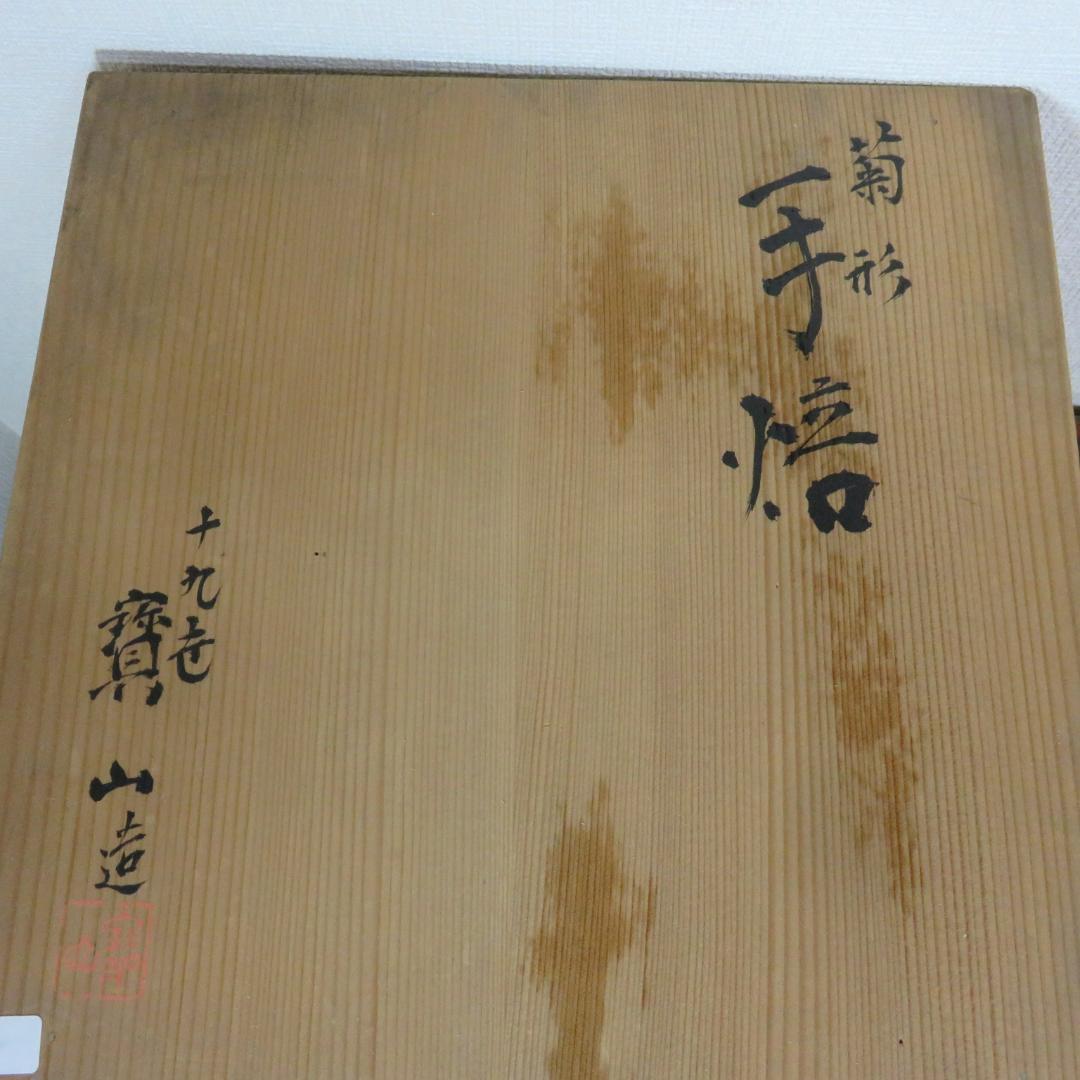 菊形
手焙
十九世
寳山造